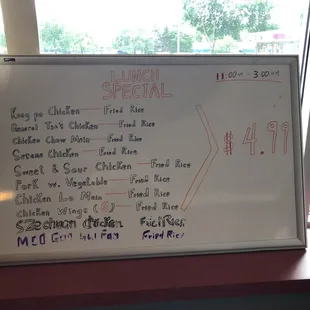 LUNCH SPECIAL
11:00am - 3:00pm
Kung po Chicken — Fried Rice
General Tso's Chicken — Fried Rice
Chicken Chow Main — Fried Rice
Sesame Chicken — Fried Rice
Sweet & Sour Chicken — Fried Rice
Pork w. Vegetable — Fried Rice
Chicken Lo Main — Fried Rice
Chicken Wings (8) — Fried Rice
$4.99
Szechuan Chicken Fried Rice
Moo Goo Gai Pan Fried Rice